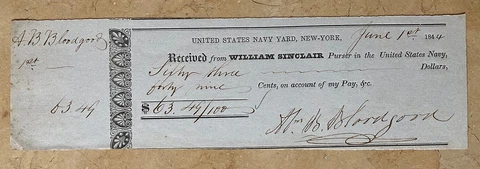 A. B. Bloodgood
1st
63.49
UNITED STATES NAVY YARD, NEW-YORK, June 1st 1844
Received from WILLIAM SINCLAIR Purser in the United States Navy,
Sixty three Dollars,
forty nine Cents, on account of my Pay, &c.
$ 63.49/100
Abm B. Bloodgood